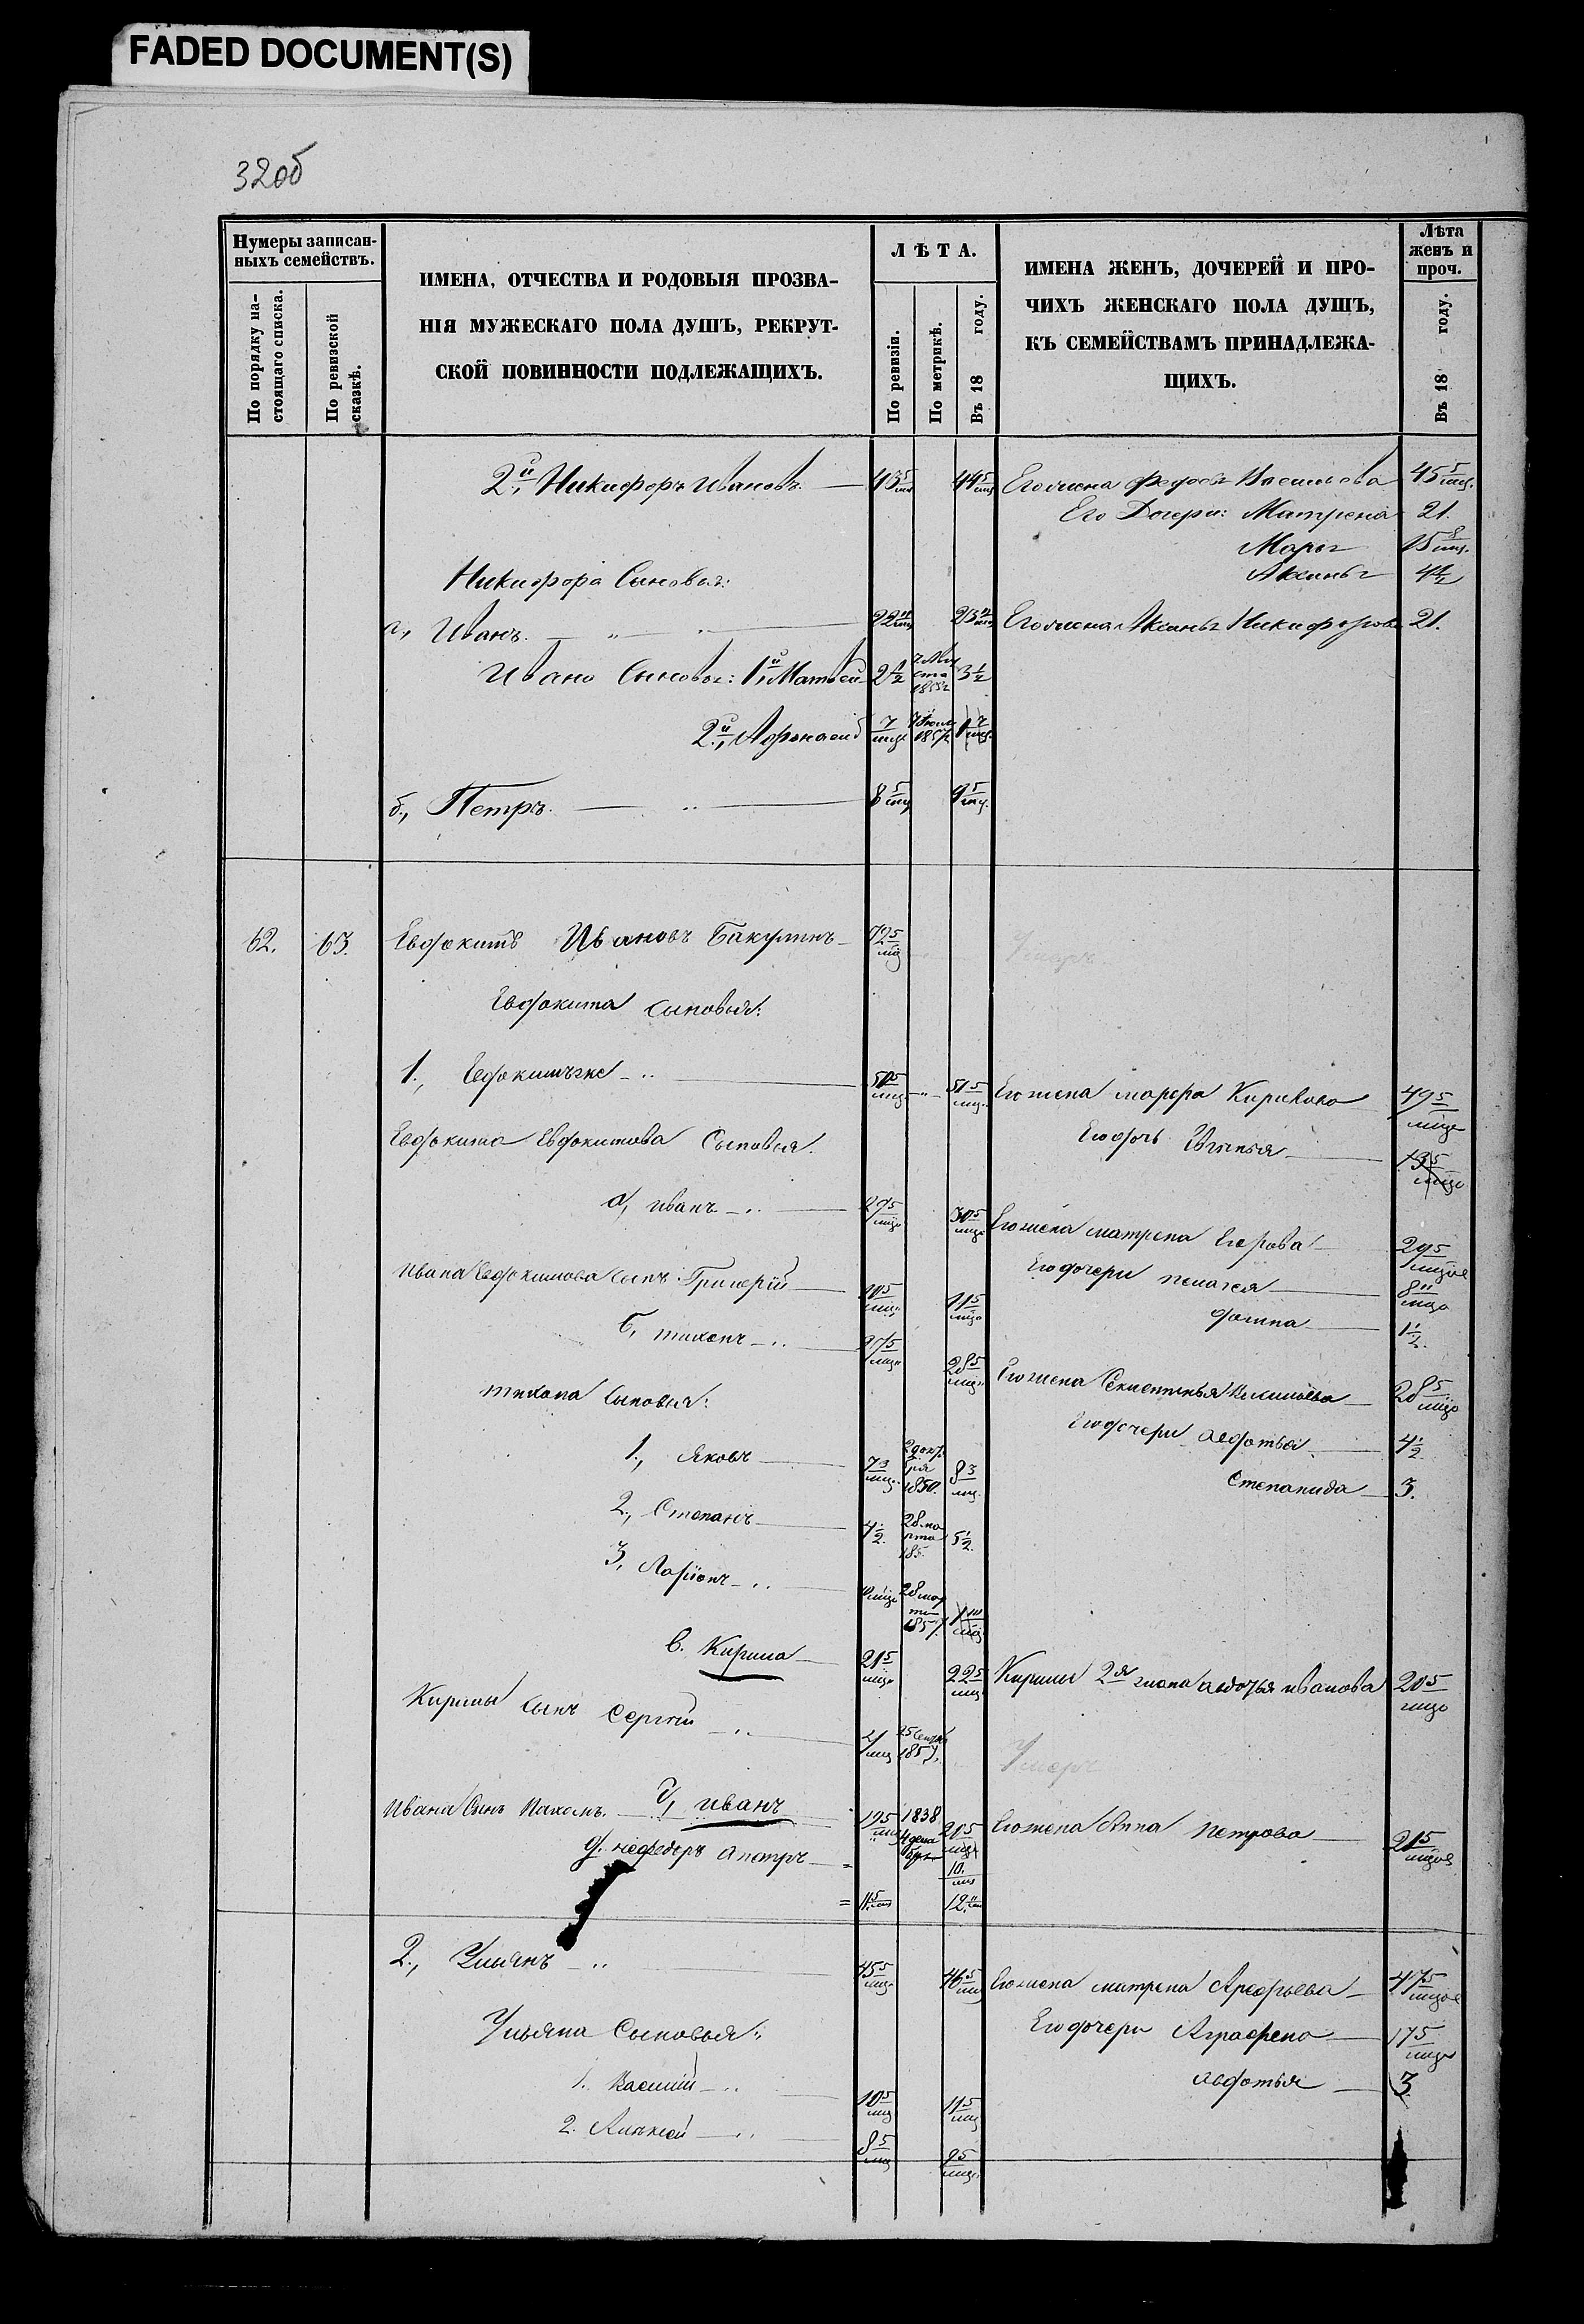 FADED DOCUMENT(S)
32об
Нумеры записан-
ныхъ семействъ.
По порядку на-
стоящаго списка.
По ревизской
сказкѣ.
ИМЕНА, ОТЧЕСТВА И РОДОВЫЯ ПРОЗВА-
НІЯ МУЖЕСКАГО ПОЛА ДУШЪ, РЕКРУТ-
СКОЙ ПОВИННОСТИ ПОДЛЕЖАЩИХЪ.
ЛѢТА.
По ревизіи.
По метрикѣ.
Въ 18 году.
ИМЕНА ЖЕНЪ, ДОЧЕРЕЙ И ПРО-
ЧИХЪ ЖЕНСКАГО ПОЛА ДУШЪ,
КЪ СЕМЕЙСТВАМЪ ПРИНАДЛЕЖА-
ЩИХЪ.
Лѣта
женъ и
проч.
Въ 18 году.
2й, Никифоръ Ивановъ 43 5/мц 44 5/мц Его жена Федосья Васильева 45 5/мц.
Его Дочери: Матрена 21.
Марья 15
Аксинья 4 1/2
Никифора Сыновья:
а, Иванъ. 22 23 Его жена Аксинья Никифорова 21.
Ивана Сыновья: 1й, Матвей 2 1/2 3 1/2
2й, Афонасий 7/мце 1857 1 7/мце
б, Петръ. 8 5/мц 9 5/мц.
62. 63. Евдокимъ Ивановъ Бакулинъ 72 5/мц Умеръ
Евдокима Сыновья:
1., Евдокимъ же 50 5/мце 51 5/мце Его жена марфа Кирилова 49 5/мце
Евдокима Евдокимова Сыновья. Его дочь Евгенья 13 5/мце
а, иванъ 29 5/мце 30 5/мце Его жена матрена Егорова 29 5/мце
Ивана Евдокимова сынъ Григорій 10 5/мце 11 5/мце Его дочери пелагея 8 11/мце
домна 1 1/2.
б, тихонъ 27 5/мце 28 5/мце Его жена 28 5/мце
тихона Сыновья: Его дочери авдотья 4 1/2
1., Яковъ 7 3/мце 1850. 8 3/мц. Степанида 3.
2, Степанъ 4 1/2. 28 марта 185. 5 1/2.
3, Ларіонъ 28 мар та 1857. 1
в. Кирила 21 5/мце 22 5/мце Кирилы 2я жена авдотья иванова 20 5/мце
Кирилы сынъ Сергѣй 25 Сентяб 1857. Умеръ
Ивана Сынъ Пахомъ. г, иванъ 19 5/мце 1838 20 5/мце Его жена Анна петрова 21 5/мце
д. не федоръ а петръ 10./мц
11 5/мц 12.
2., Ульянъ 45 5/мце 46 5/мц Его жена матрена Арефьева 47 5/мце
Ульяна Сыновья: Его дочери Аграфена 17 5/мце
1. Василій 10 5/мце 11 5/мце авдотья 3.
2. Алексей 8 5/мц 9 5/мце